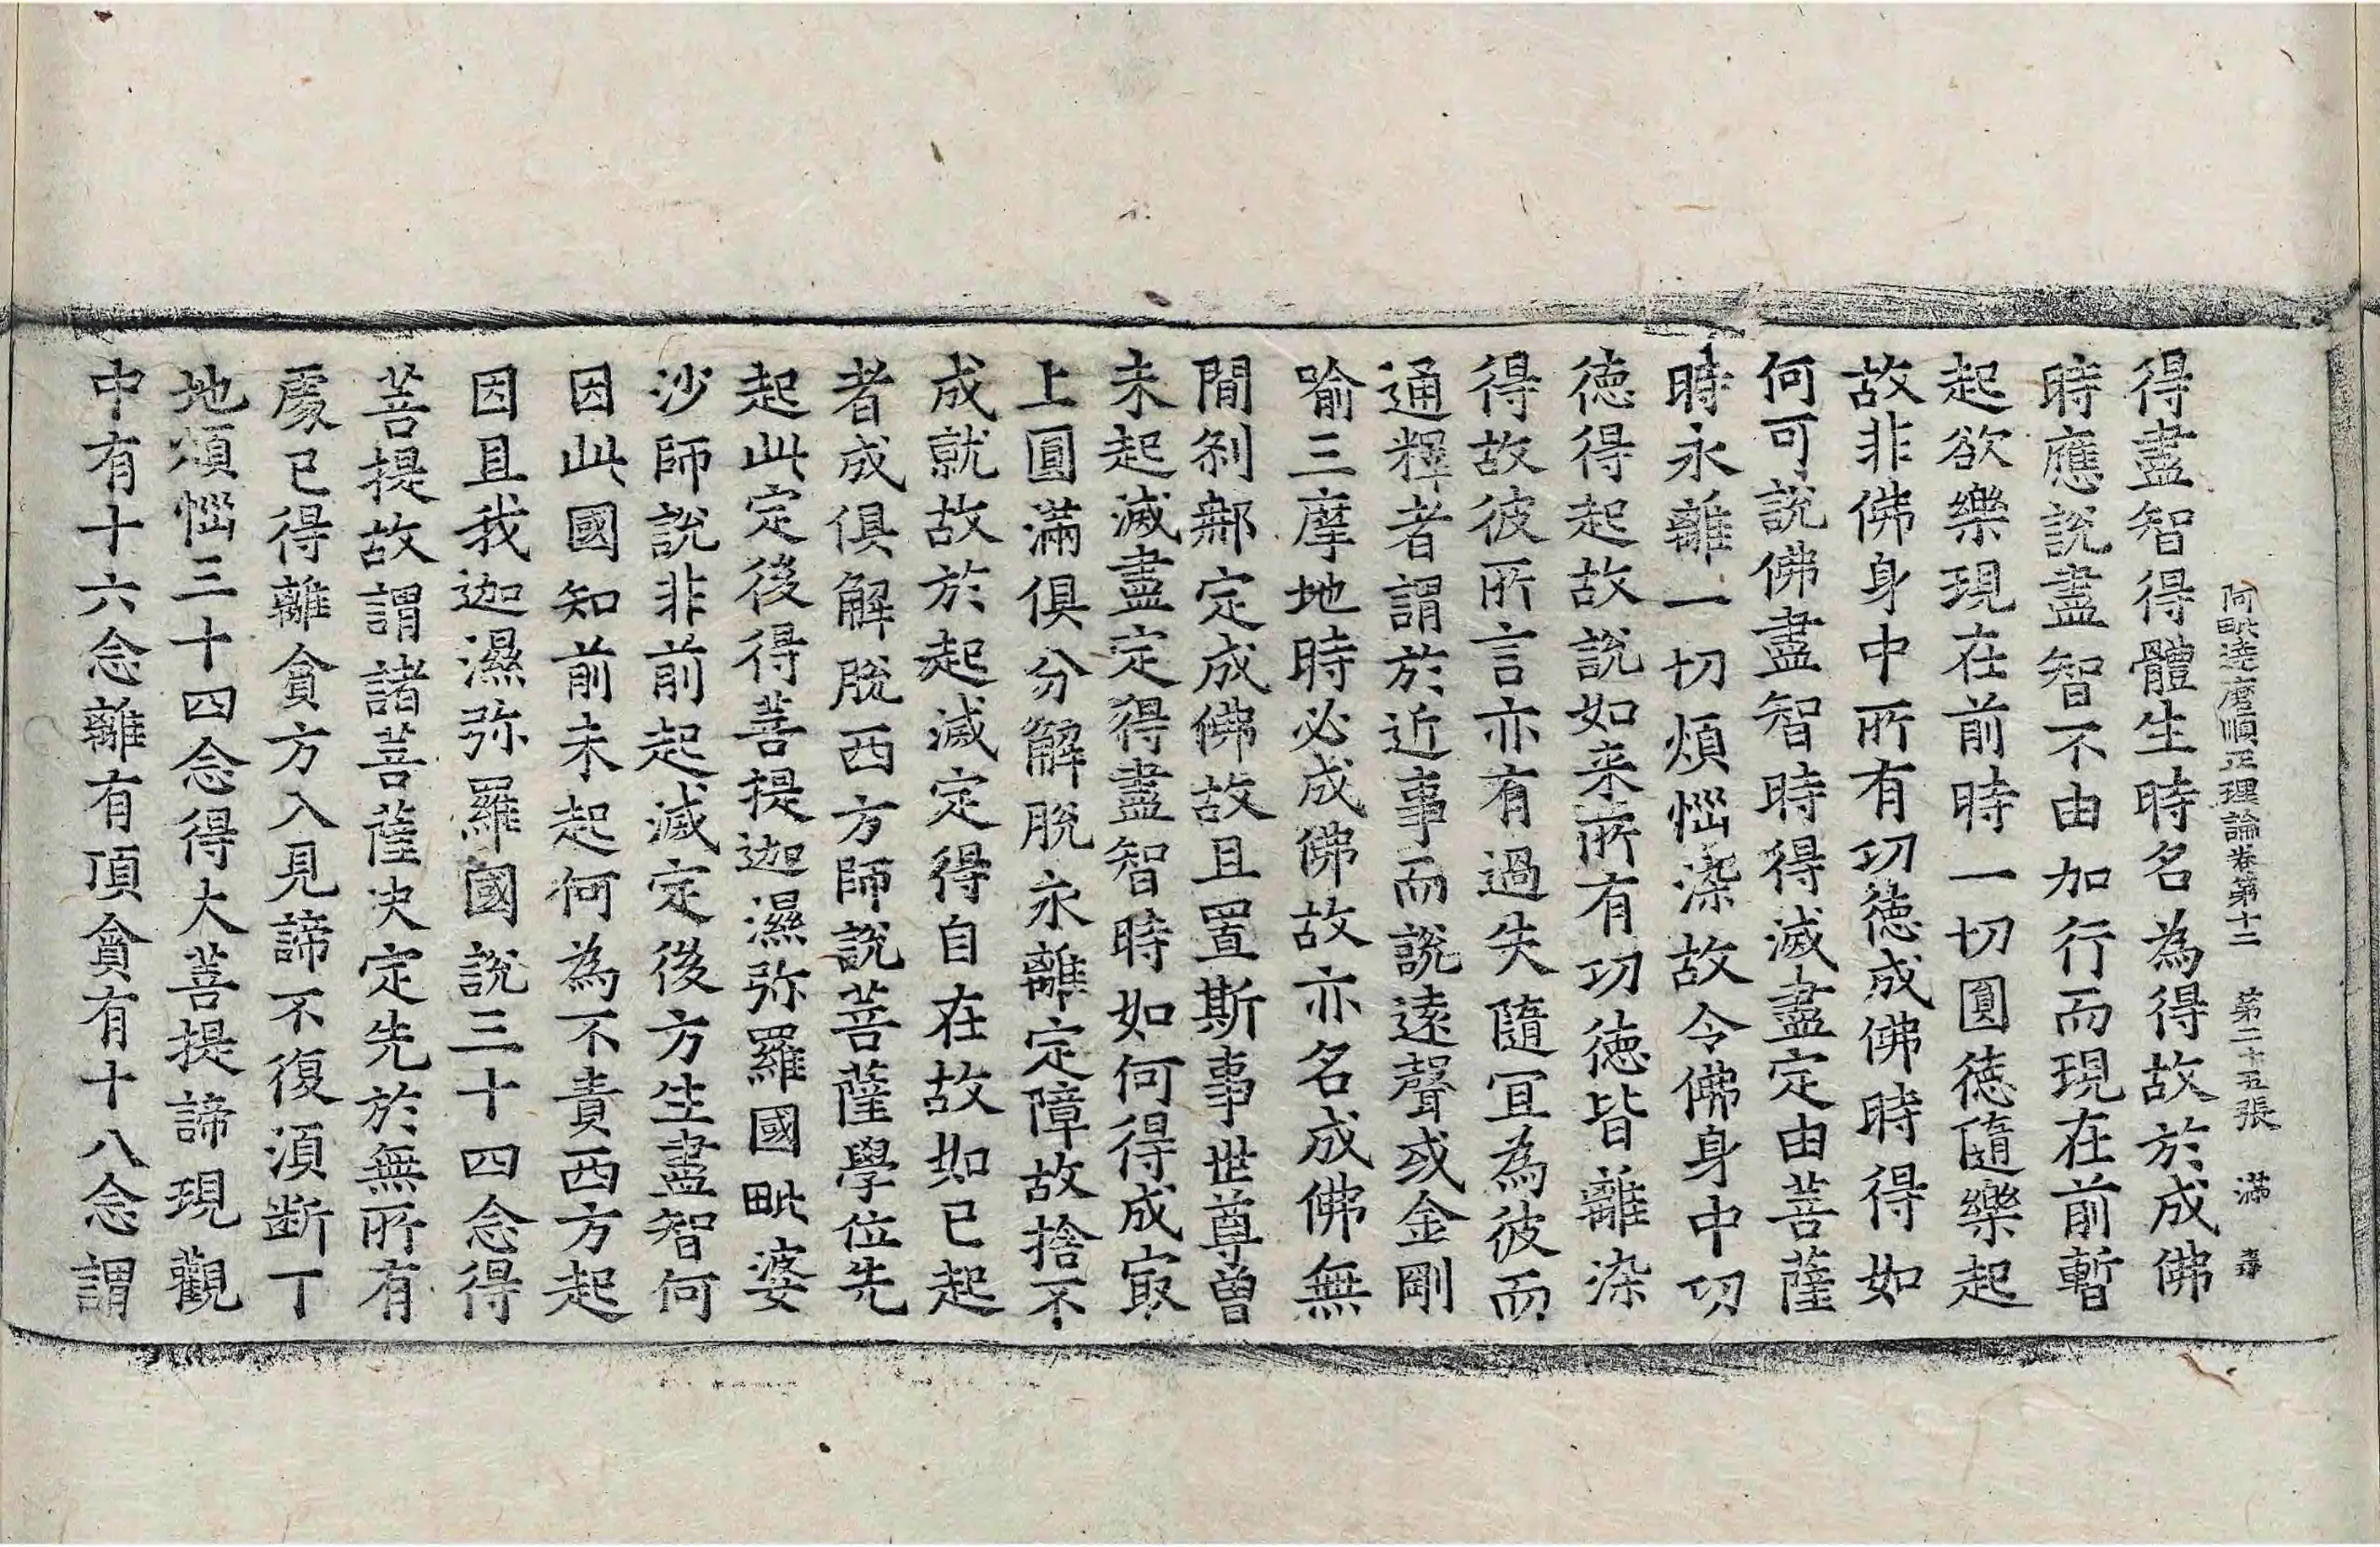 阿毗達磨順正理論卷第十二　第二十五張　滿
得盡智得體生時名為得故於成佛
時應說盡智不由加行而現在前暫
起欲樂現在前時一切圓德隨樂起
故非佛身中所有功德成佛時得如
何可說佛盡智時得滅盡定由菩薩
時永離一切煩惱染故令佛身中功
德得起故說如来所有功德皆離染
得故彼所言亦有過失隨宜為彼而
通釋者謂於近事而說遠聲或金剛
喻三摩地時必成佛故亦名成佛無
間剎那定成佛故且置斯事世尊曾
未起滅盡定得盡智時如何得成㝡
上圓滿俱分解脫永離定障故捨不
成就故於起滅定得自在故如已起
者成俱解脫西方師說菩薩學位先
起此定後得菩提迦濕弥羅國毗婆
沙師說非前起滅定後方生盡智何
因此國知前未起何為不責西方起
因且我迦濕弥羅國說三十四念得
菩提故謂諸菩薩决定先於無所有
處已得離貪方入見諦不復湏断下
地煩惱三十四念得大菩提諦現觀
中有十六念離有頂貪有十八念謂